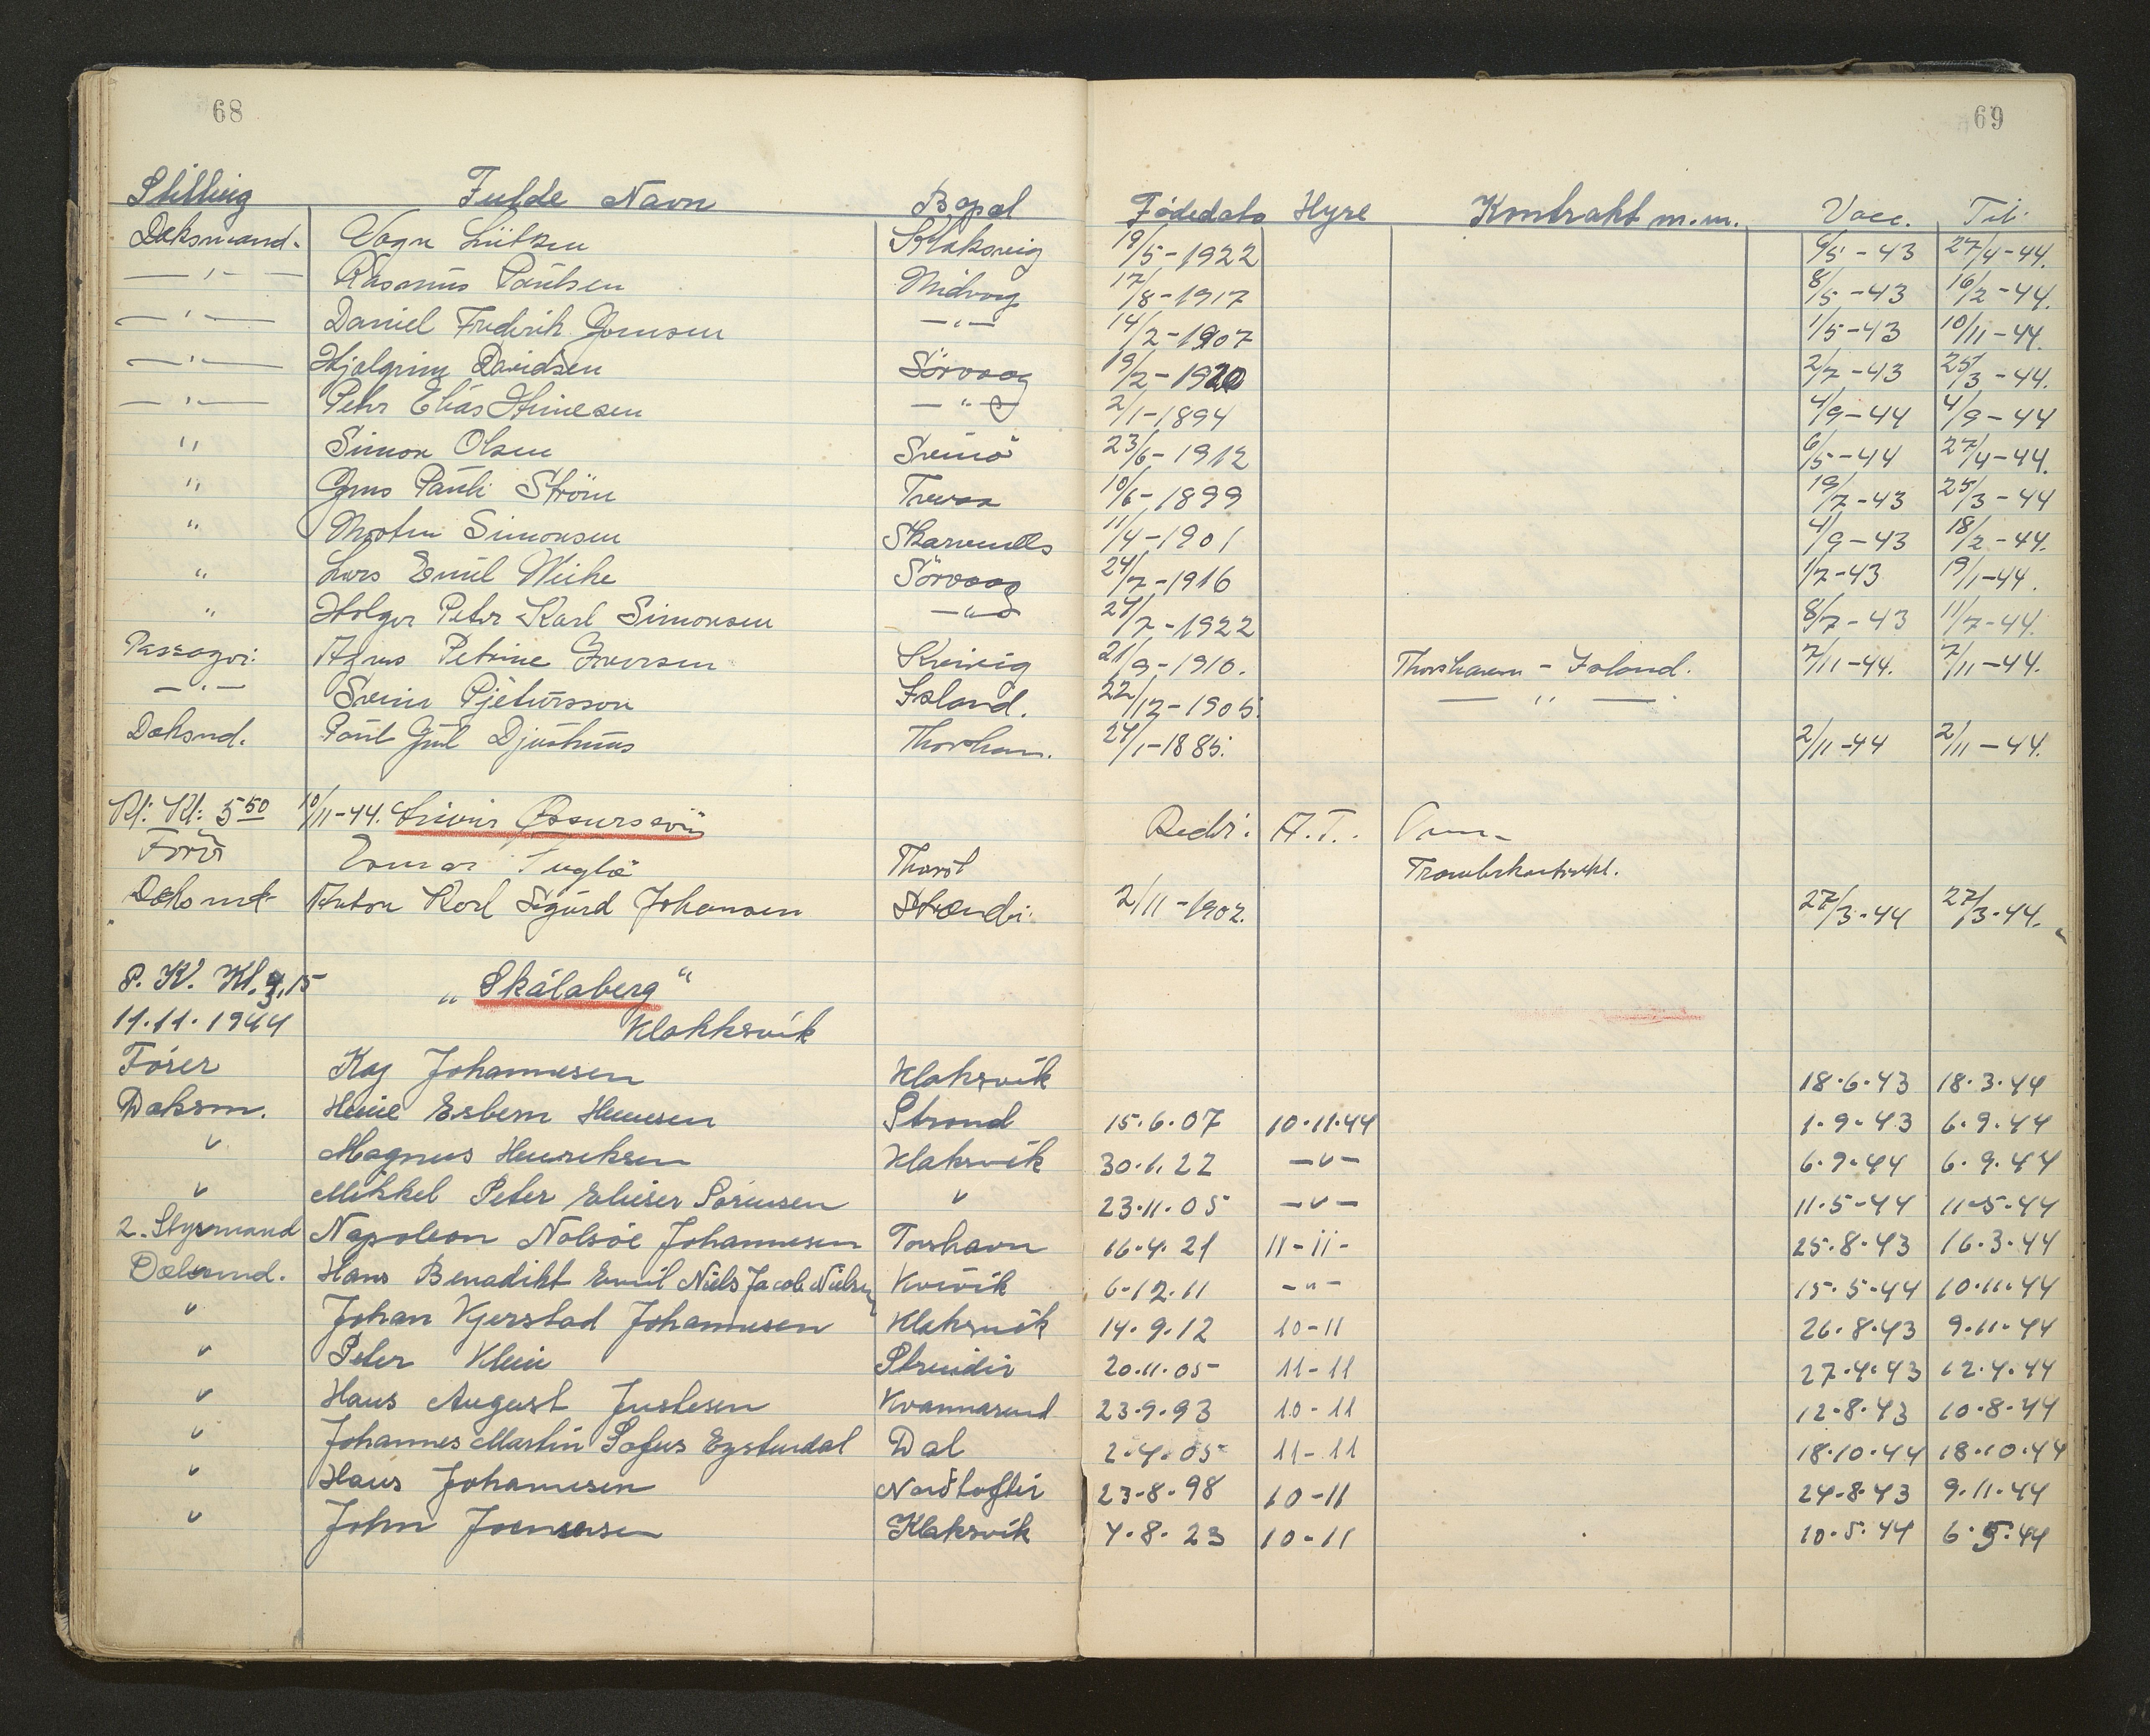 68
69
Stilling Fulde Navn Bopæl Födedato Hyre Kontrakt m.m. Vacc. Tilt.
Dæksmand. Vagn Lützen Klaksvig 19/5-1922 6/5-43 27/4-44.
—"— Rasmus Paulsen Midvog 17/8-1917 8/5-43 16/2-44.
—"— Daniel Frederik Joensen —"— 14/2-1907 1/5-43 10/11-44.
—"— Hjalgrim Davidsen Sörvaag 19/2-1920 2/7-43 25/3-44.
—"— Petur Elias —"— 2/1-1894 4/9-44 4/9-44
" Simon Olsen Svinö 23/6-1912 6/5-44 27/4-44.
" Jens Pauli Ström 10/6-1899 19/7-43 25/3-44
" Morten Simonsen 11/4-1901 4/9-43 18/2-44.
" Lars Emil Weihe Sörvaag 24/7-1916 1/7-43 19/1-44.
" Holger Peter Karl Simonsen —"— 24/7-1922 8/7-43 11/7-44.
Passager: Agnes Petrine Iversen Kvivig 21/9-1910. Thorshavn - Island. 7/11-44. 7/11-44.
—"— Svein Pjetursson Island. 22/12-1905. — " —
Daksmd. Paul Djurhuus Thorshavn. 24/1-1885. 2/11-44 2/11-44.
Kl: 5 50 10/11-44. Reder: A.T.
Fører
Daksmd Anton Karl Sigurd Johansen 2/11-1902. 27/3-44 27/3-44.
P. K. Kl. 9,15 „Skálaberg"
11.11.1944 Klakksvík
Förer Kaj Johannesen Klaksvík 18.6.43 18.3.44
Daksm. Heine Esbern Strond 15.6.07 10.11.44 1.9.43 6.9.44
" Magnus Henriksen Klaksvík 30.1.22 —"— 6.9.44 6.9.44
" Mikkel Peter Elieser Sörensen " 23.11.05 —"— 11.5-44 11-5.44
2. Styrmand Napoleon Nolsöe Johannesen Torshavn 16.4.21 11-11- 25.8.43 16.3.44
Daksmd. Hans Benadikt Emil Niels Jacob Nielsen Kvivík 6.12.11 -"- 15.5.44 10.11.44
" Johan Kjerstad Johannesen Klaksvík 14.9.12 10-11 26.8.43 9.11.44
" Peter Klein Strendir 20.11.05 11-11 27.4.43 12.4.44
" Hans August Justesen Kvannasund 23.9.93 10-11 12.8.43 10.8.44
" Johannes Martin Sofus Eysturdal Dal 2.4.05 11-11 18.10.44 18.10.44
" Hans Johannesen Nordtoftir 23.8.98 10-11 24.8.43 9.11.44
" John Joensen Klaksvík 4.8.23 10-11 10.5.44 6.5.44